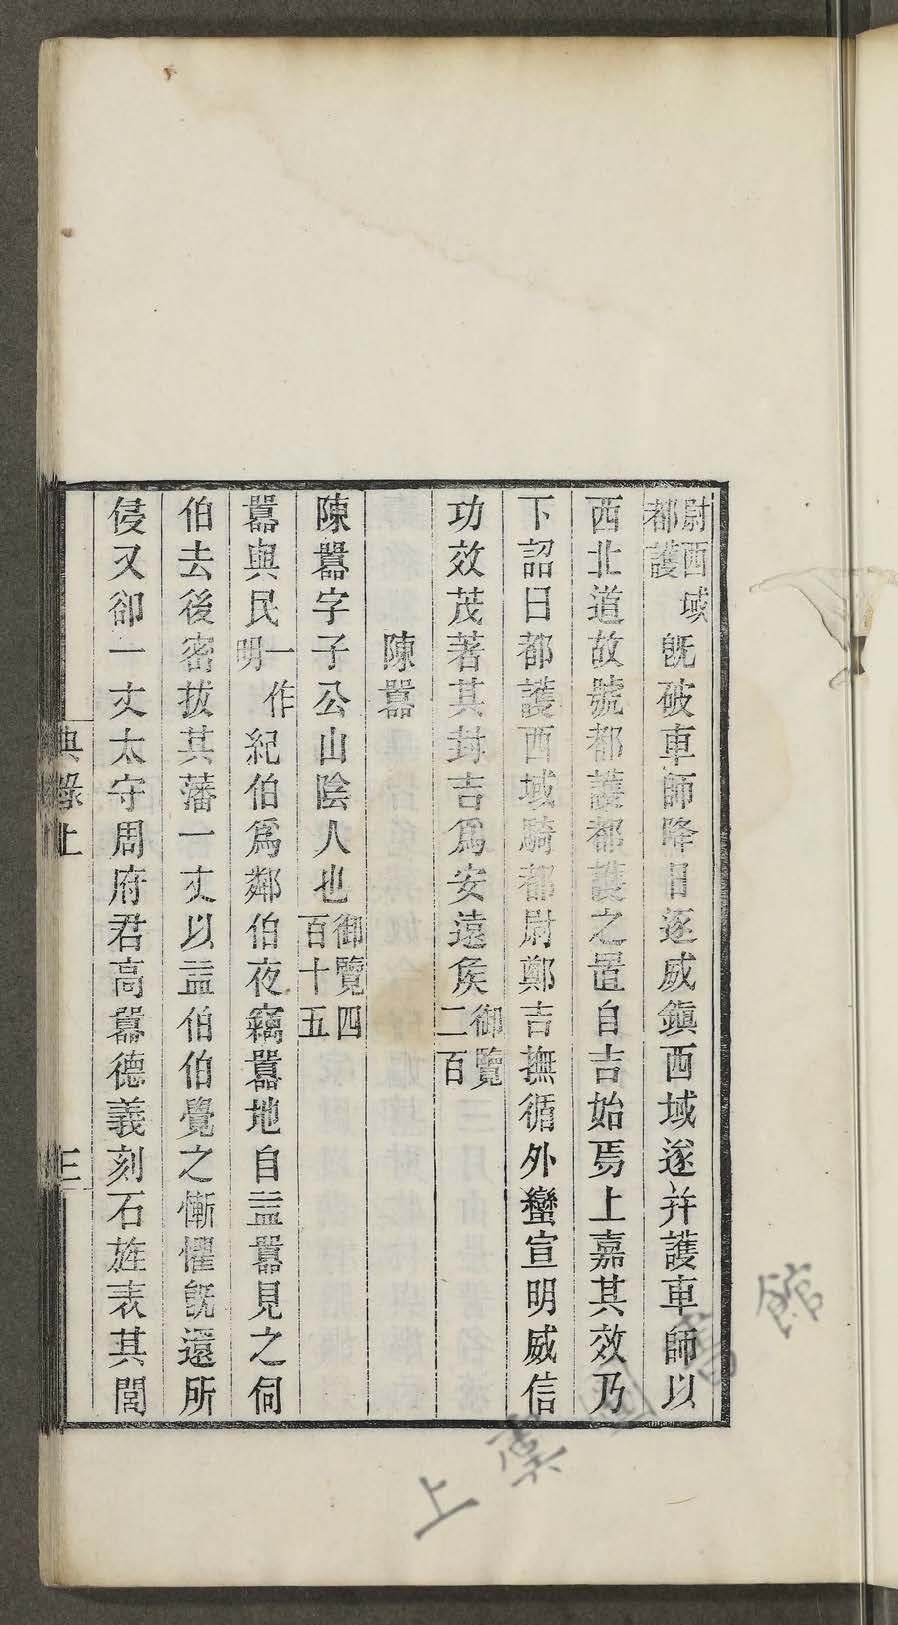 尉西域都護旣破車師降日逐威鎭西域遂幷護車師以
西北道故號都護都護之置自吉始焉上嘉其效乃
下詔曰都護西域騎都尉鄭吉撫循外蠻宣明威信
功效茂著其封吉爲安遠侯御覽二百
陳囂
陳囂字子公山陰人也御覽四百十五
囂與民一作明紀伯爲鄰伯夜竊囂地自益囂見之伺
伯去後密拔其藩一丈以益伯伯覺之慚懼旣還所
侵又卻一丈太守周府君高囂德義刻石旌表其閭
典錄上
三
上虞圖書館